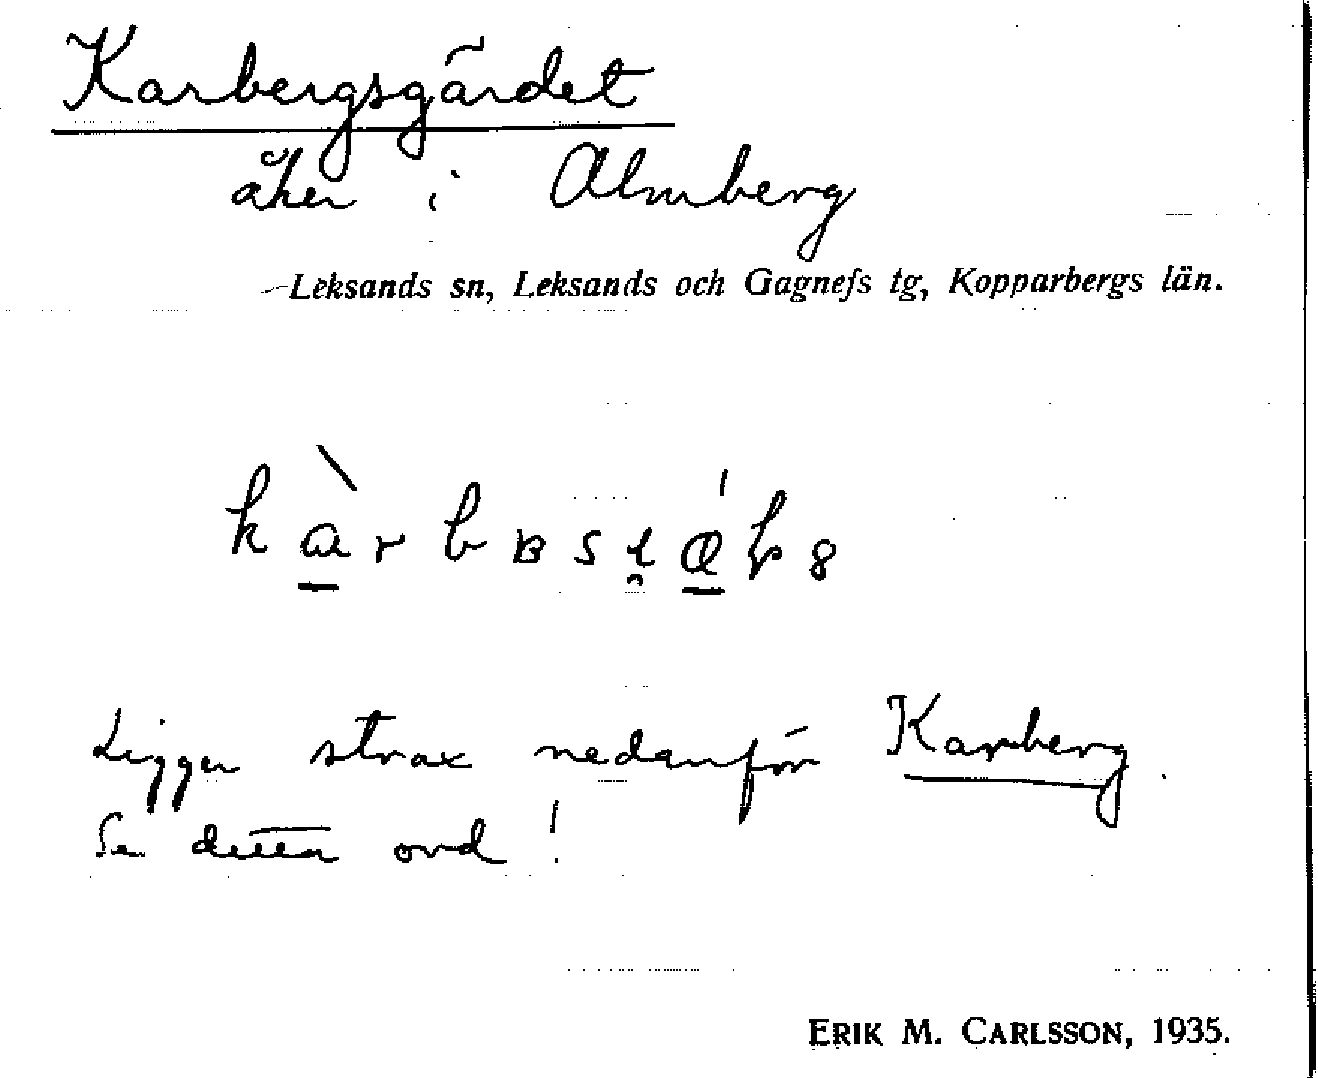 Karbergsgärdet
åker i Almberg
Leksands sn, Leksands och Gagnefs tg, Kopparbergs län.
Ligger strax nedanför Karberg.
Se detta ord!
ERIK M. CARLSSON, 1935.